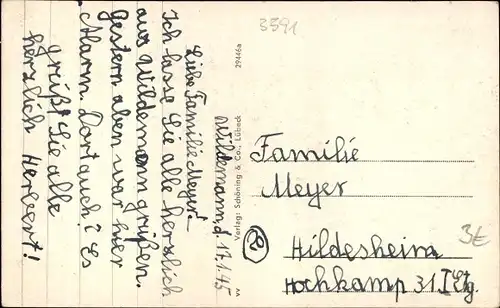 3591
Wildemann, d. 17.1.45
Liebe Familie Meyer!
Ich lasse Sie alle herzlich
aus Wildemann grüßen.
Gestern aben war hier
Alarm. Dort auch? Es
grüßt Sie alle
herzlich Herbert!
W Verlag: Schöning & Co., Lübeck 29446a
Familie
Meyer
Hildesheim
Hochkamp 31 I Etg.
3€